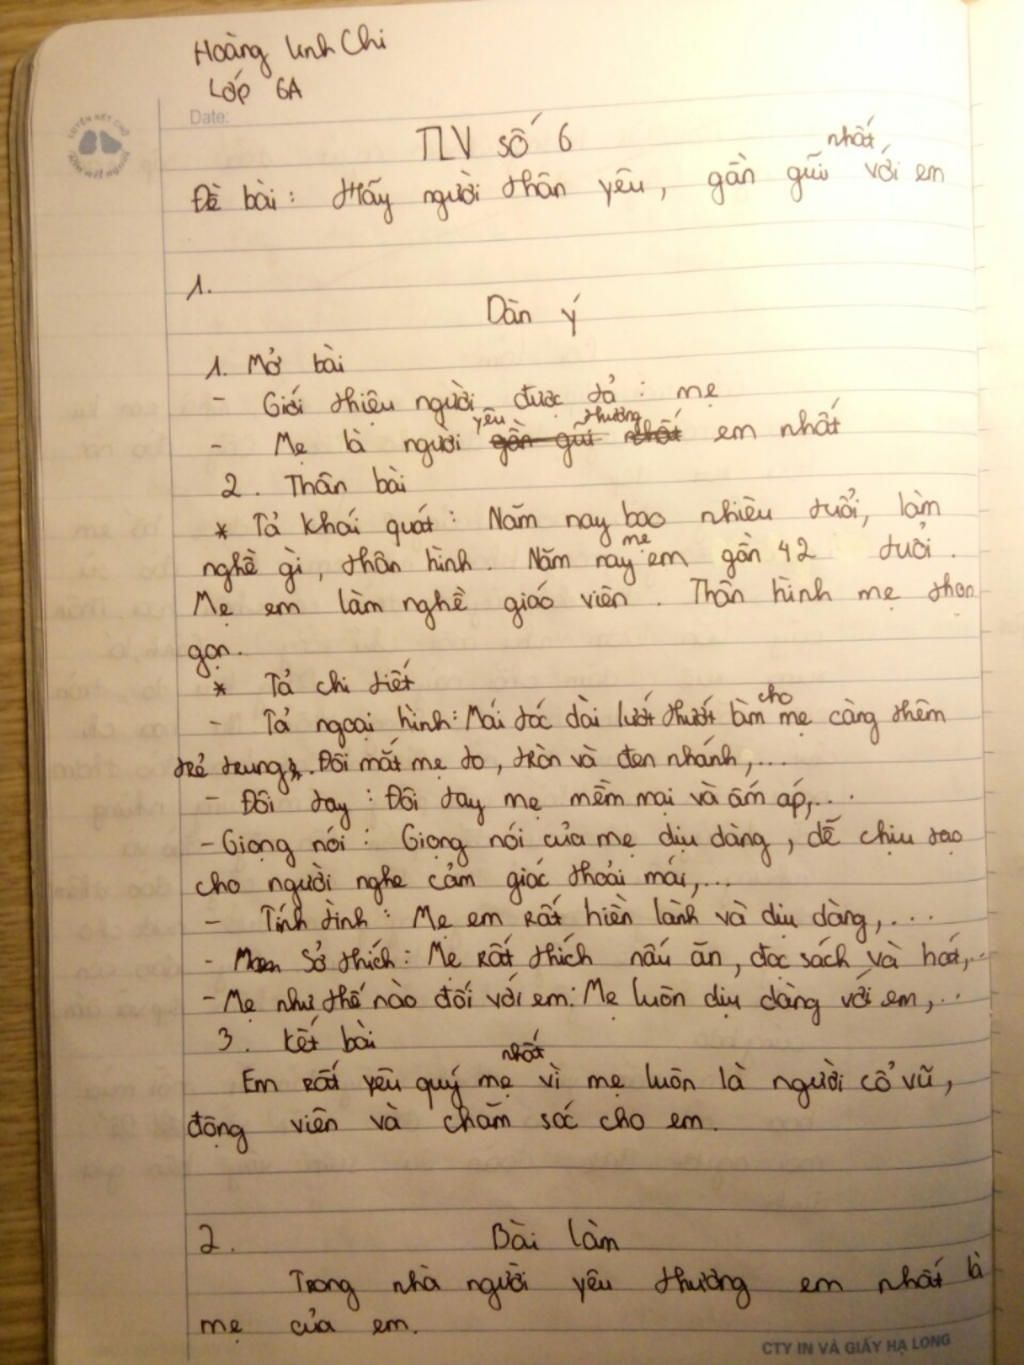 Hoàng Linh Chi
Lớp 6A
Date:
LUYỆN NÉT CHỮ
RÈN NẾT NGƯỜI
TLV số 6
Đề bài: Hãy người thân yêu, gần gũi nhất với em
1.
Dàn ý
1. Mở bài
- Giới thiệu người được tả: mẹ
- Mẹ là người yêu thương em nhất
2. Thân bài
* Tả khái quát: Năm nay bao nhiêu tuổi, làm
nghề gì, thân hình. Năm nay mẹ em gần 42 tuổi.
Mẹ em làm nghề giáo viên. Thân hình mẹ thon
gọn.
* Tả chi tiết
- Tả ngoại hình: Mái tóc dài lướt thướt làm cho mẹ càng thêm
trẻ trung. Đôi mắt mẹ to, tròn và đen nhánh,...
- Đôi tay: Đôi tay mẹ mềm mại và ấm áp,...
- Giọng nói: Giọng nói của mẹ dịu dàng, dễ chịu tạo
cho người nghe cảm giác thoải mái,...
- Tính tình: Mẹ em rất hiền lành và dịu dàng,....
- Sở thích: Mẹ rất thích nấu ăn, đọc sách và hát,..
- Mẹ như thế nào đối với em: Mẹ luôn dịu dàng với em,...
3. Kết bài
Em rất yêu quý mẹ nhất vì mẹ luôn là người cổ vũ,
động viên và chăm sóc cho em.
2. Bài làm
Trong nhà người yêu thương em nhất là
mẹ của em.
CTY IN VÀ GIẤY HẠ LONG